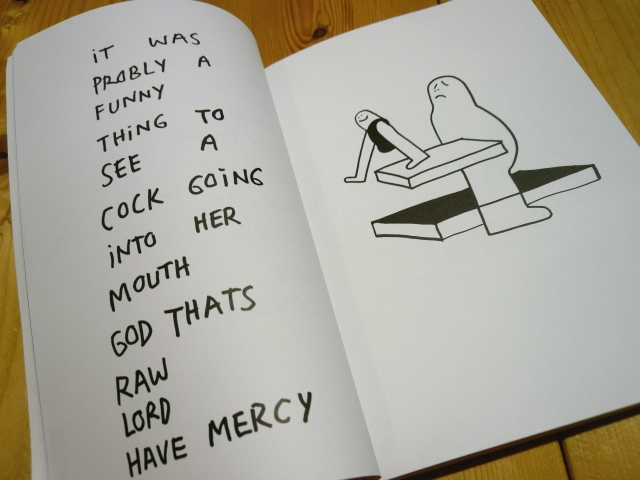 iT WAS
PROBLY A
FUNNY
THiNG TO
SEE A
COCK GOiNG
iNTO HER
MOUTH
GOD THATS
RAW
LORD
HAVE MERCY